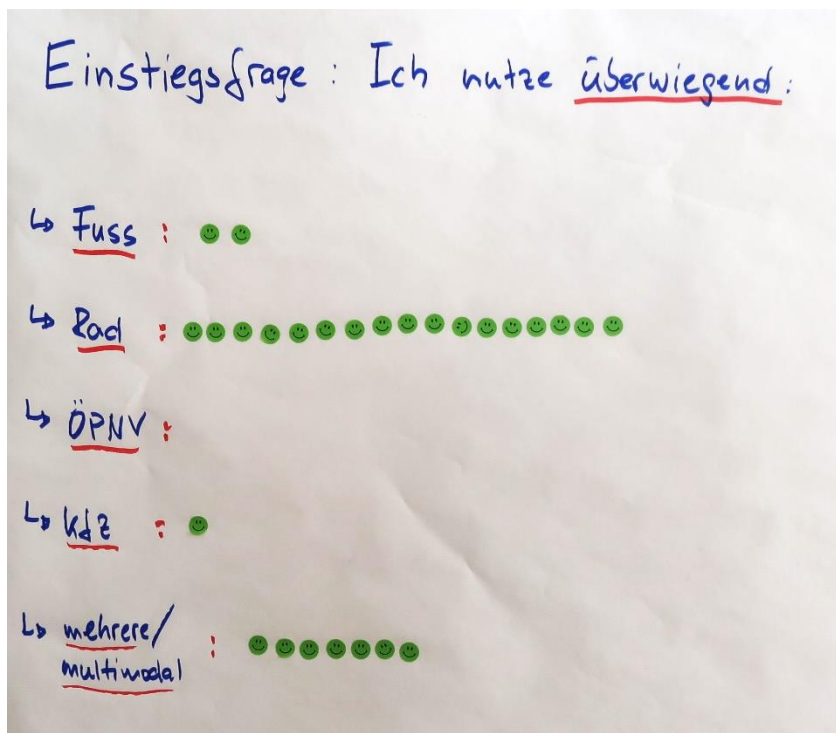 Einstiegsfrage : Ich nutze überwiegend :
↳ Fuss :
↳ Rad :
↳ ÖPNV :
↳ Kfz :
↳ mehrere/ :
multimodal